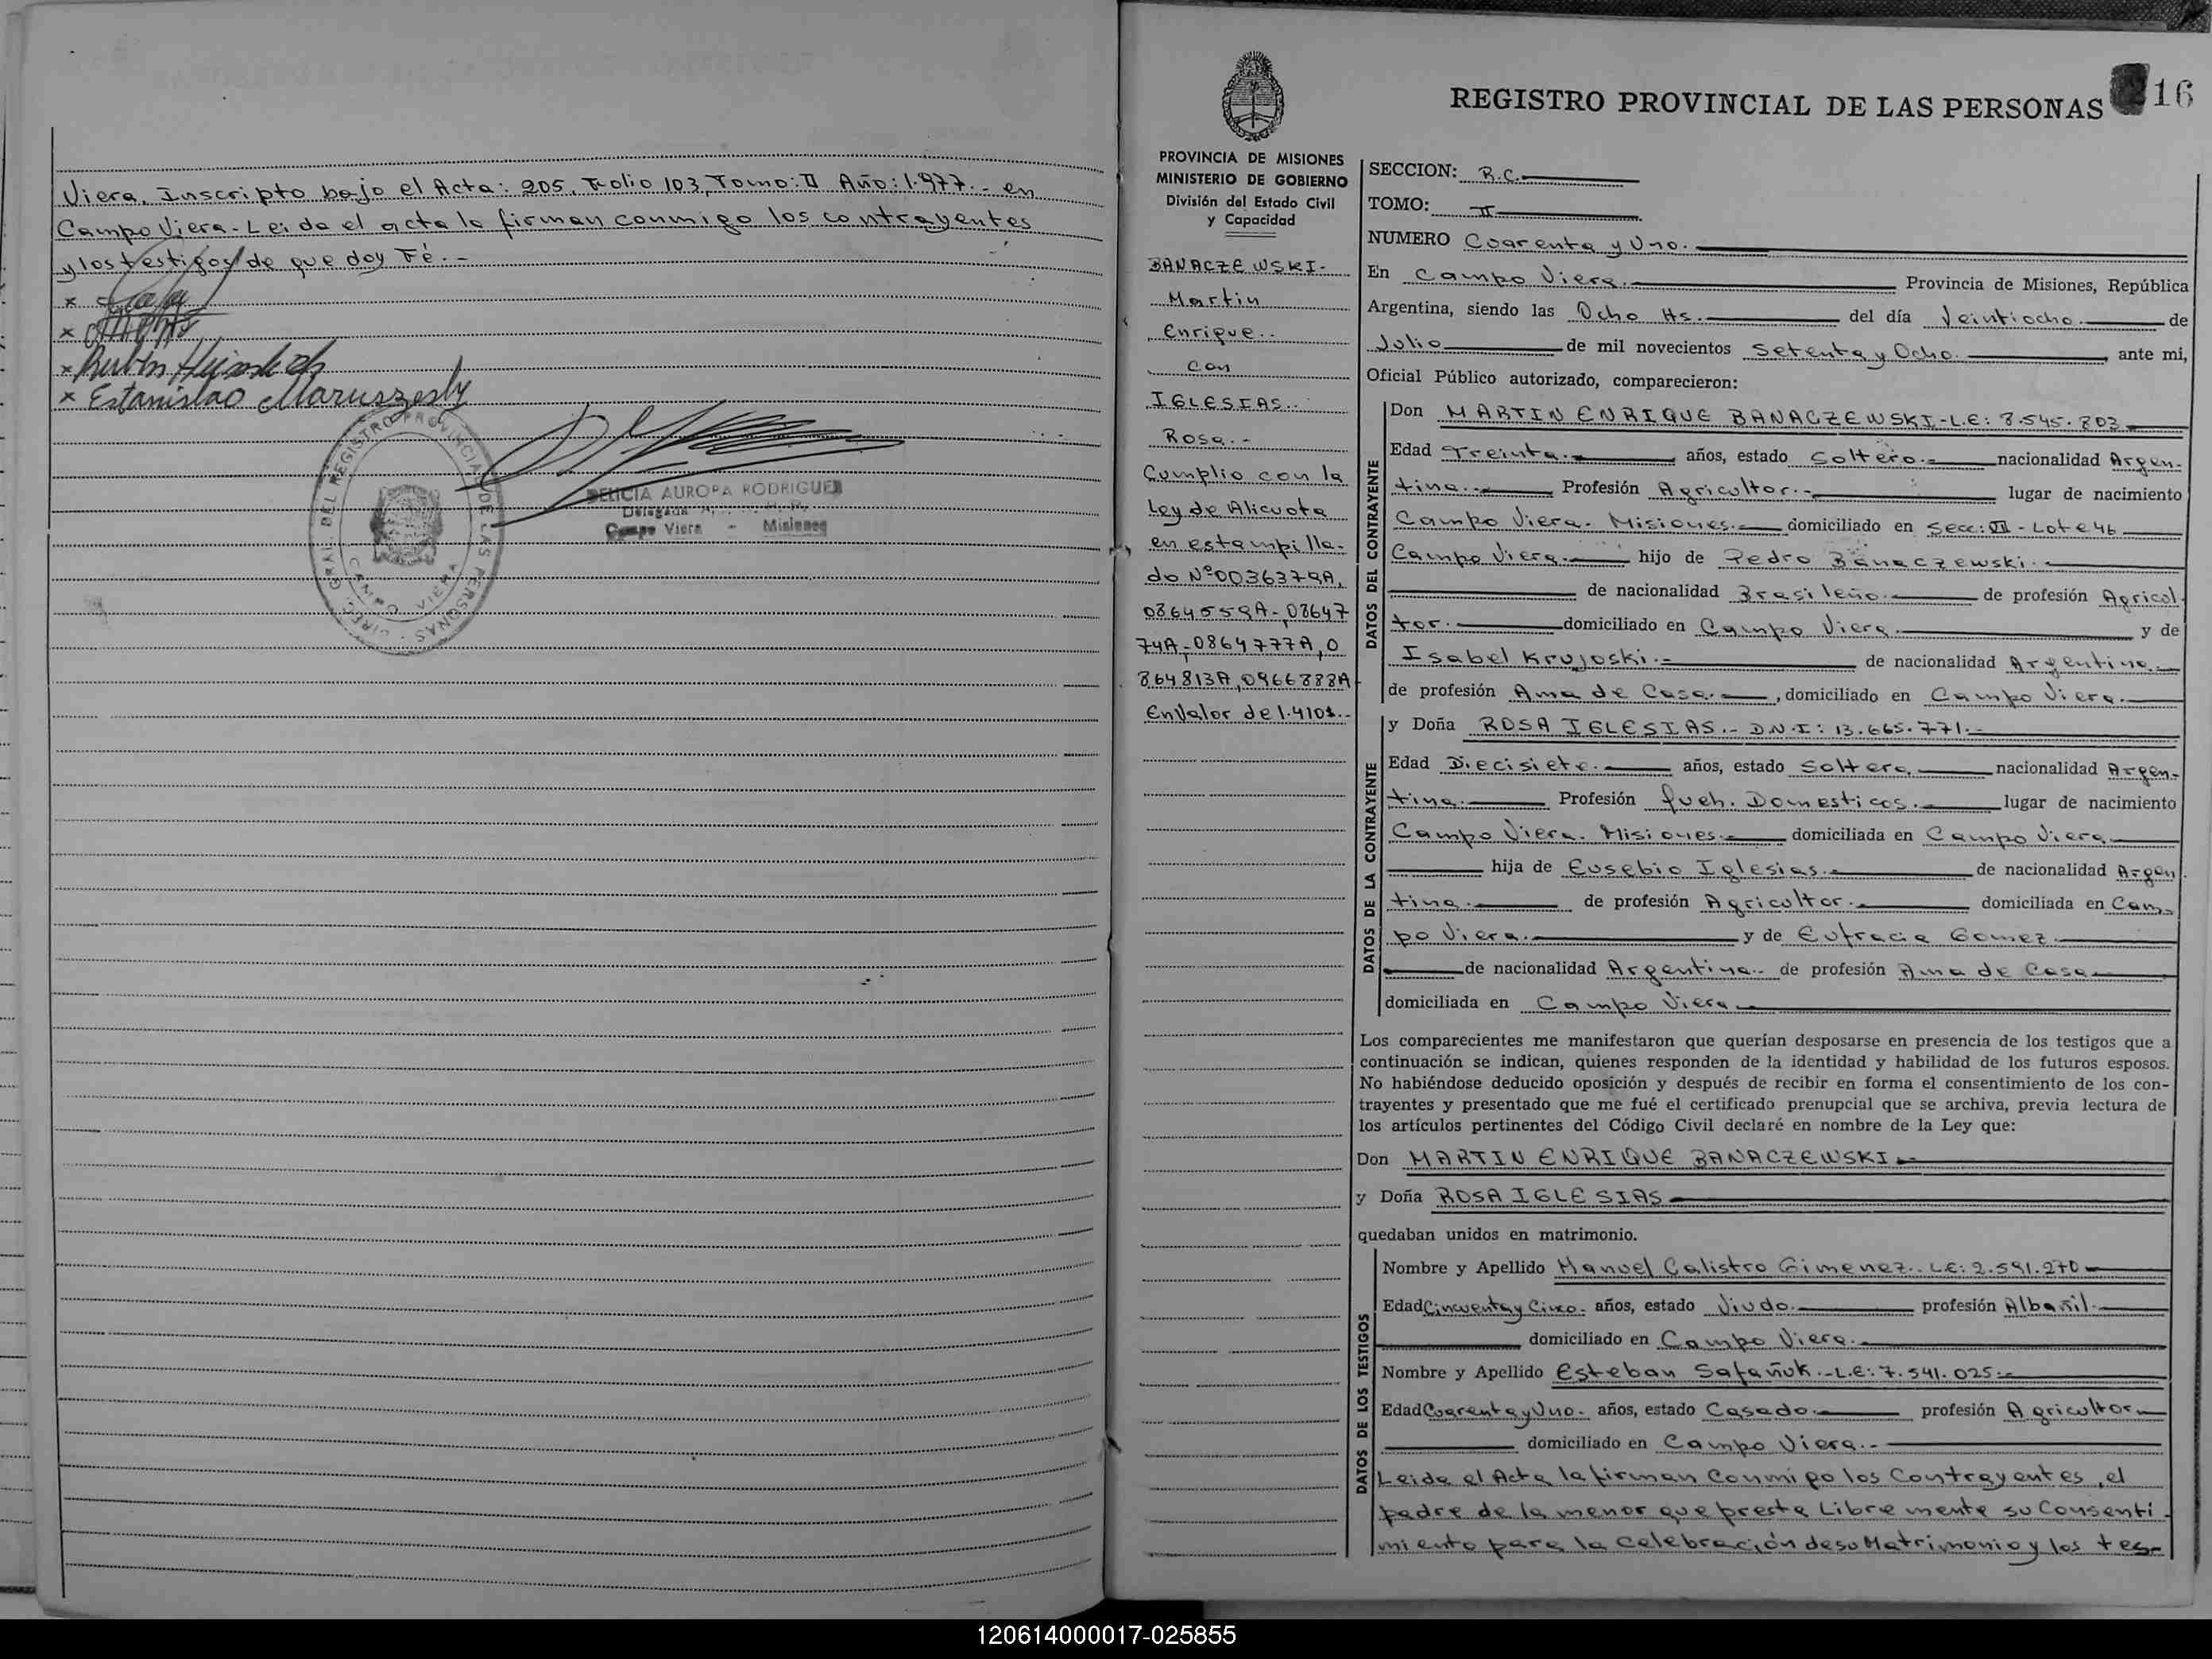 Viera. Inscripto bajo el Acta: 205. Folio 103, Tomo: II Año: 1.977.- en
Campo Viera.- Leida el acta la firman conmigo los contrayentes
y los testigos de que doy Fé.-
x
x
x Rubin
x Estanislao Maruszesky
DIREC. GRAL. DEL REGISTRO PROVINCIAL DE LAS PERSONAS
CAMPO VIERA
DELICIA AURORA RODRIGUEZ
Delegada
Campo Viera - Misiones
REGISTRO PROVINCIAL DE LAS PERSONAS 16
PROVINCIA DE MISIONES
MINISTERIO DE GOBIERNO
División del Estado Civil
y Capacidad
BANACZEWSKI.
Martin
Enrique..
con
IGLESIAS..
Rosa.-
Cumplio con la
Ley de Alicuota
en estampilla-
do Nº0036379A,
0864559A-, 08647
74A-, 0864777A, 0
864813A, 0966888A
En Valor de 1.410$.-
SECCION: R.C.
TOMO: II
NUMERO Cuarenta y Uno.
En Campo Viera. Provincia de Misiones, República
Argentina, siendo las Ocho Hs. del día Veintiocho. de
Julio de mil novecientos Setenta y Ocho. , ante mi,
Oficial Público autorizado, comparecieron:
DATOS DEL CONTRAYENTE
Don MARTIN ENRIQUE BANACZEWSKI-L.E: 8.545.803
Edad Treinta. años, estado Soltero.- nacionalidad Argen-
tina.- Profesión Agricultor.- lugar de nacimiento
Campo Viera. Misiones.- domiciliado en Secc: VII - Lote 46
Campo Viera.- hijo de Pedro Banaczewski.
de nacionalidad Brasileño. de profesión Agricul-
tor. domiciliado en Campo Viera. y de
Isabel Krujoski.- de nacionalidad Argentina.
de profesión Ama de Casa. , domiciliado en Campo Viera.
DATOS DE LA CONTRAYENTE
y Doña ROSA IGLESIAS.- D.N.I: 13.665.771.-
Edad Diecisiete. años, estado Soltera. nacionalidad Argen-
tina. Profesión Queh. Domesticos. lugar de nacimiento
Campo Viera. Misiones.- domiciliada en Campo Viera
hija de Eusebio Iglesias. de nacionalidad Argen
tina. de profesión Agricultor. domiciliada en Cam-
po Viera. y de Eufracia Gomez.
de nacionalidad Argentina.. de profesión Ama de Casa
domiciliada en Campo Viera
Los comparecientes me manifestaron que querían desposarse en presencia de los testigos que a
continuación se indican, quienes responden de la identidad y habilidad de los futuros esposos.
No habiéndose deducido oposición y después de recibir en forma el consentimiento de los con-
trayentes y presentado que me fué el certificado prenupcial que se archiva, previa lectura de
los artículos pertinentes del Código Civil declaré en nombre de la Ley que:
Don MARTIN ENRIQUE BANACZEWSKI.
y Doña ROSA IGLESIAS
quedaban unidos en matrimonio.
DATOS DE LOS TESTIGOS
Nombre y Apellido Manuel Calistro Gimenez.. L.E: 2.591.270
Edad Cincuenta y Cinco. años, estado Viudo. profesión Albañil.
domiciliado en Campo Viera.
Nombre y Apellido Esteban Safañuk.-L.E: 7.541.025.-
Edad Cuarenta y Uno. años, estado Casado. profesión Agricultor
domiciliado en Campo Viera.-
Leida el Acta la firman Conmigo los Contrayentes, el
padre de la menor que presta Libremente su Consenti-
miento para la Celebración de su Matrimonio y los tes-
120614000017-025855